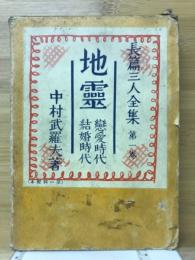 長篇三人全集 第一巻
地靈
戀愛時代
結婚時代
中村武羅夫著